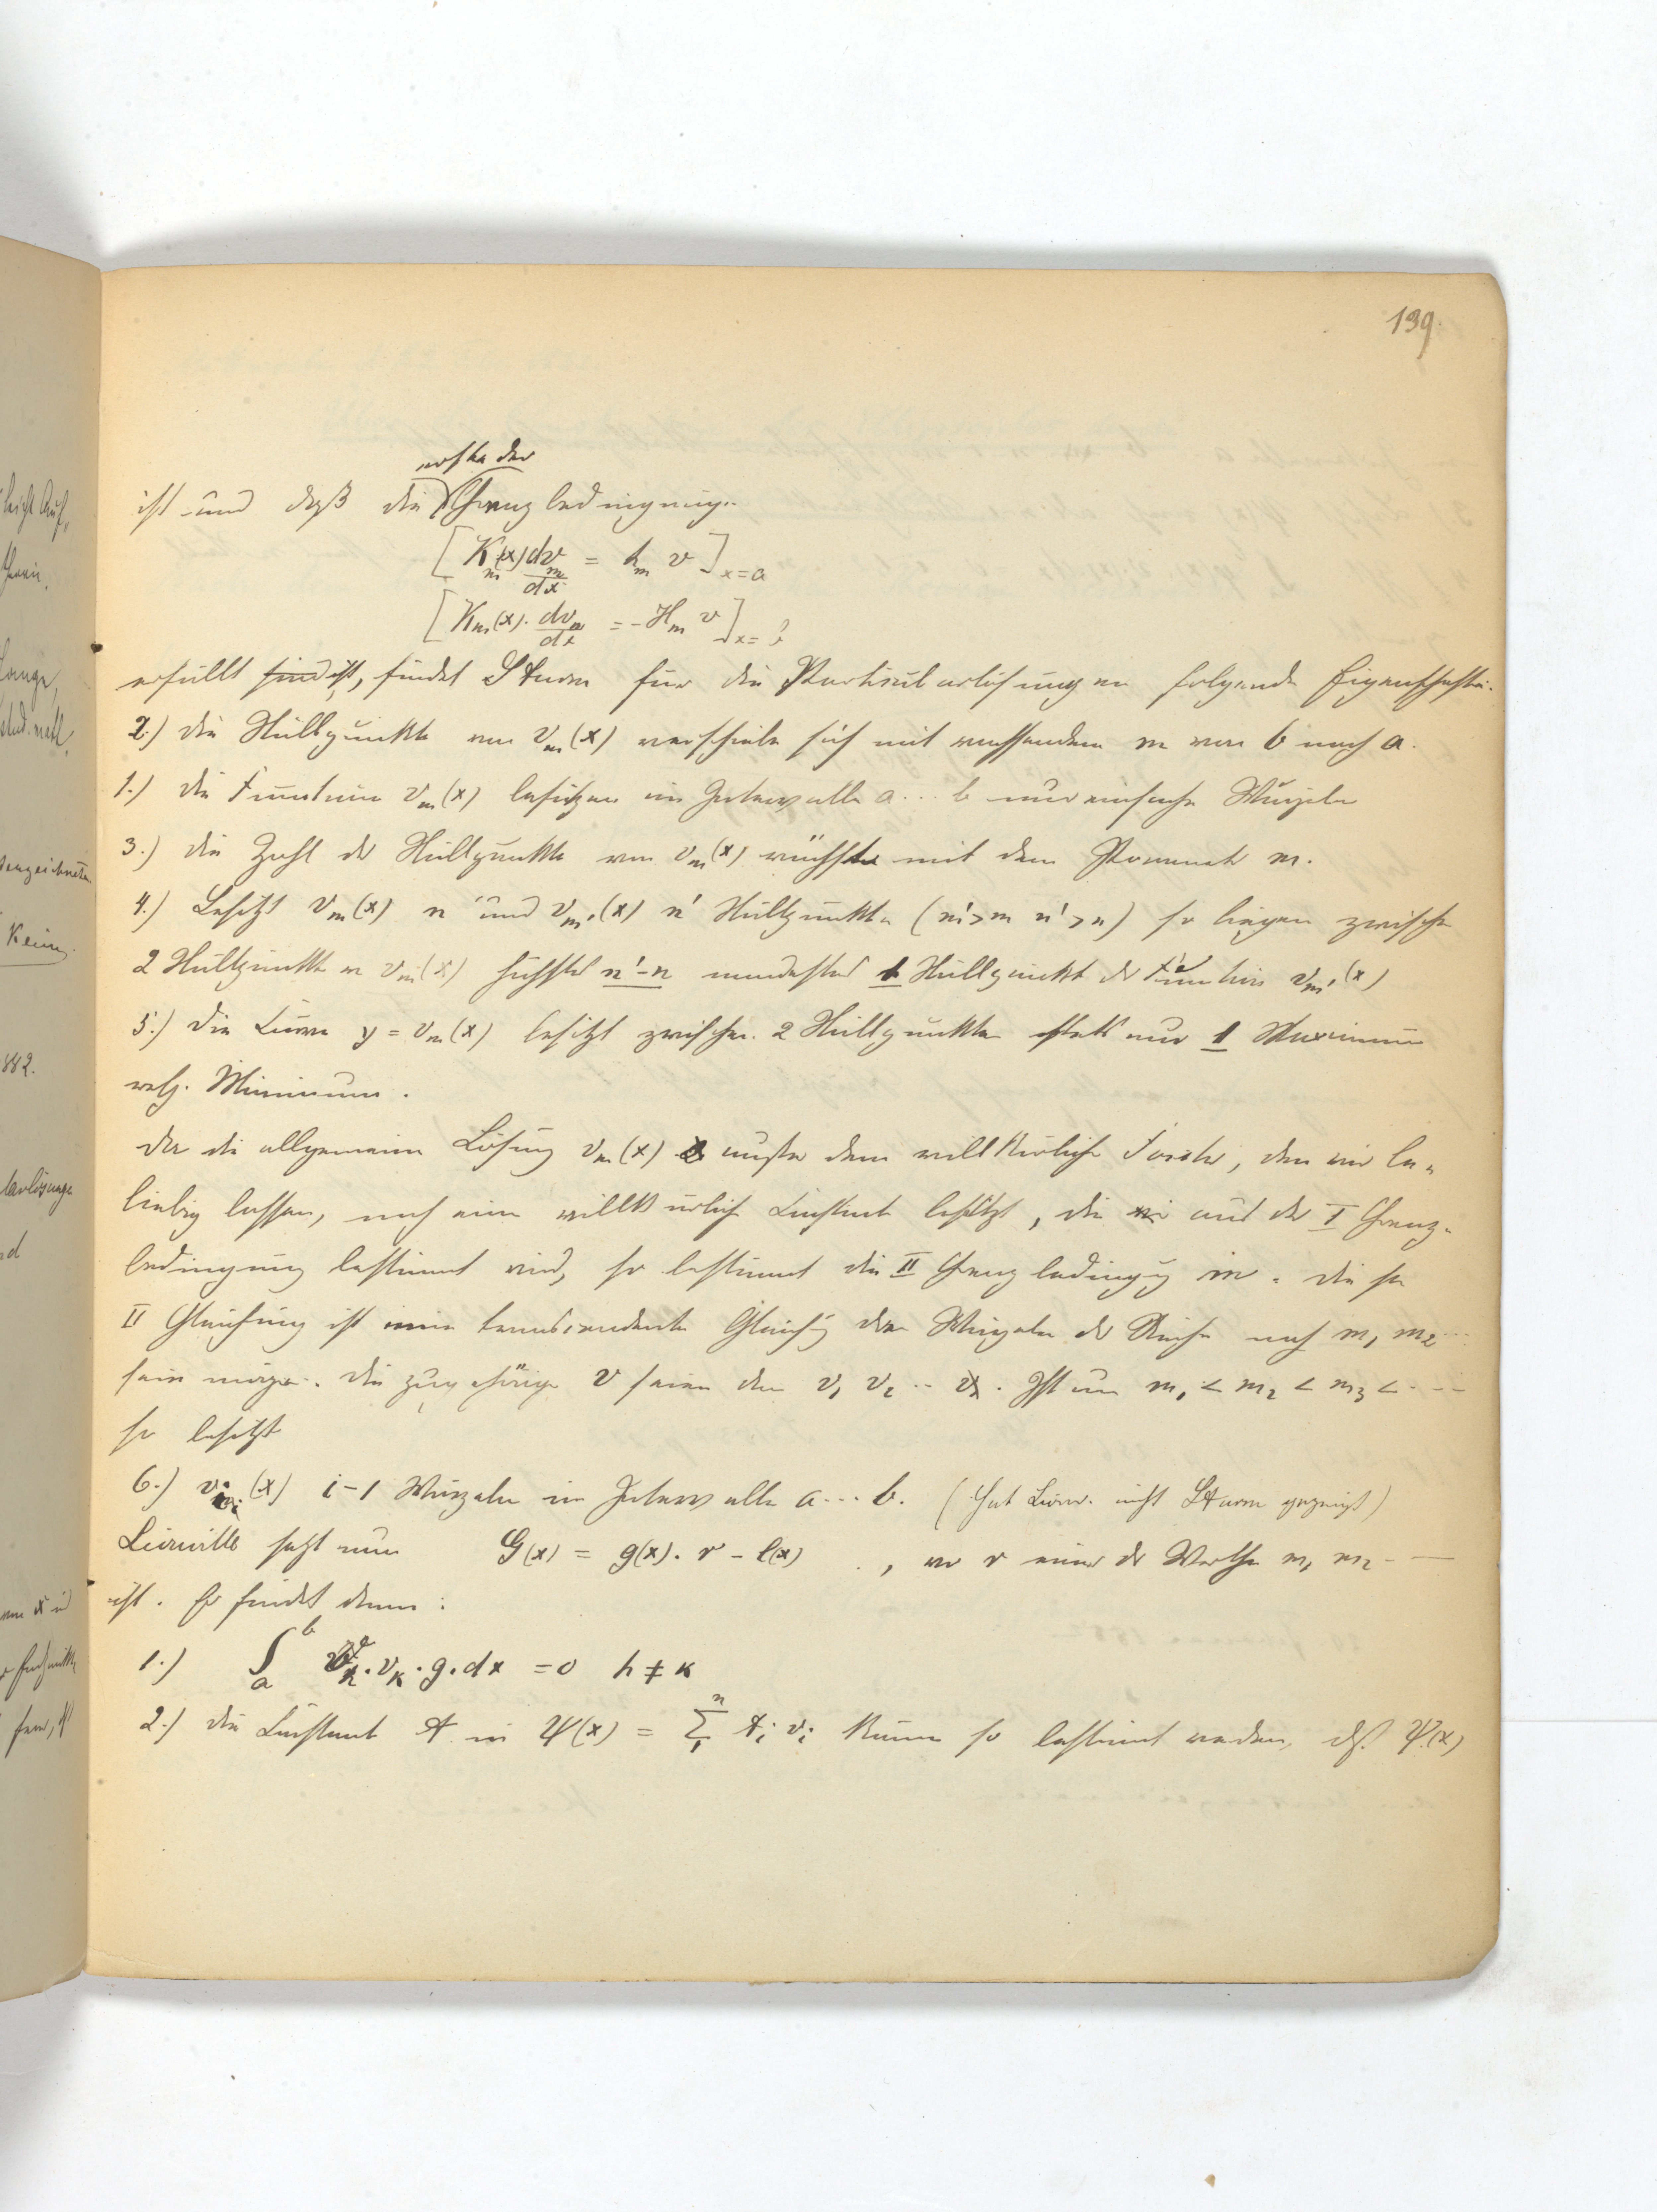 139.
erste der
ist und daß die Grenzbedingung
[K_m(x) dv_m/dx = h_m v]_x=a
[K_m(x) · dv_m/dx = - H_m v]_x=b
erfüllt sind ist, findet Sturm für die Partikularlösungen folgende Eigenschaften.
2.) die Nullpunkte von v_m(x) verschieben sich mit wachsendem m von b nach a.
1.) die Function v_m(x) besitzen im Intervalle a...b nur einfache Wurzeln
3.) die Zahl der Nullpunkte von v_m(x) wächst mit dem Parameter m.
4.) Besitzt v_m(x) n und v_m'(x) n' Nullpunkte (m'>m n'>n) so liegen zwischen
2 Nullpunkten v_m(x) höchstens n'-n mindestens 1 Nullpunkt der Function v_m'(x)
5.) Die Curve y = v_m(x) besitzt zwischen 2 Nullpunkten stets nur 1 Maximum
resp. Minimum.
Da die allgemeine Lösung v_m(x) außer dem willkürlichen Factor, den wir be=
liebig lassen, noch eine willkürliche Constante besitzt, die aus der I Grenz=
bedingung bestimmt wird, so bestimmt die II Grenzbedingung m. Diese
II Gleichung ist eine transcendente Gleichung deren Wurzeln der Reihe nach m_1 m_2 ...
sein mögen. Die zugehörigen v seien dann v_1 v_2 ... Ist nun m_1 < m_2 < m_3 < ...
so besitzt
6.) v_i(x) i-1 Wurzeln im Intervalle a...b. (Hat Liouv. nicht Sturm gezeigt)
Liouville setzt nun G(x) = g(x) · r - l(x), wo r einer der Werthe m_1 m_2 ...
ist. Er findet dann:
1.) ∫_a^b v_h · v_k · g · dx = 0 h ≠ k
2.) die Constant A in Ψ(x) = Σ_1^n A_i v_i können so bestimmt werden, dß. Ψ(x)